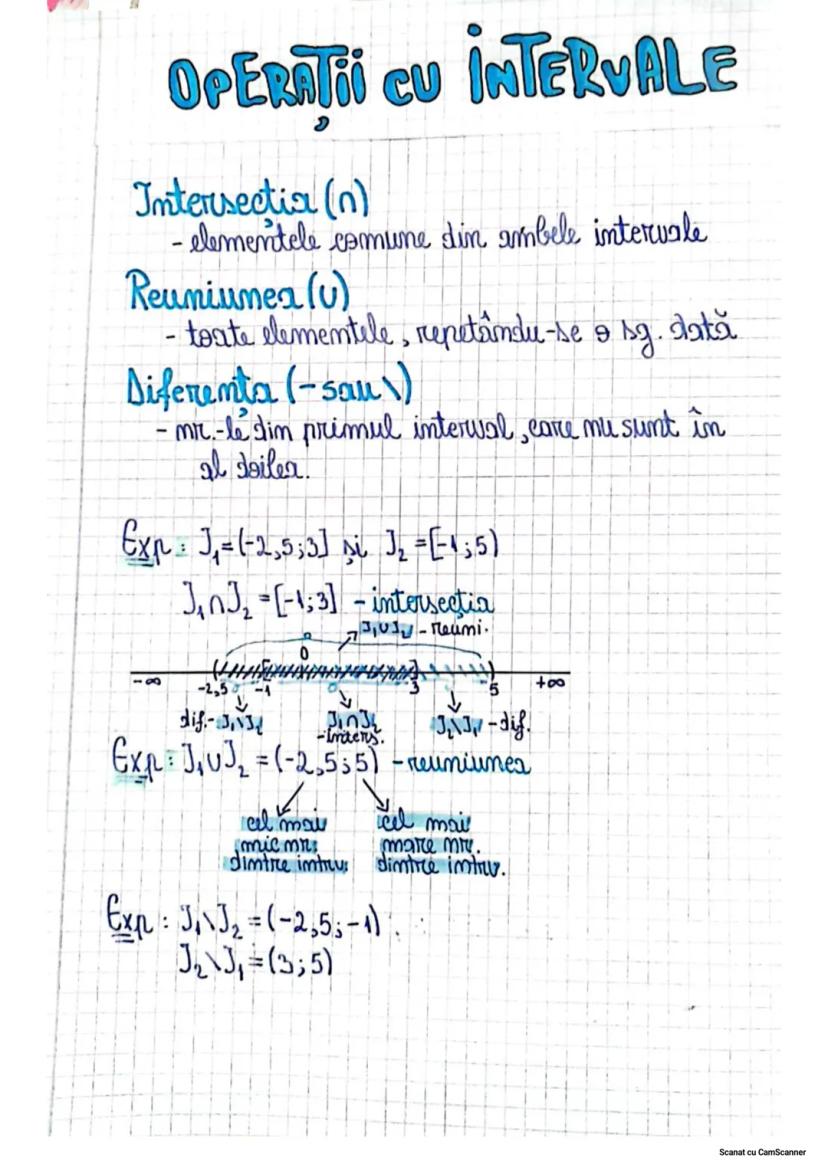 OPERAȚII CU INTERVALE
Intersecția (∩)
- elementele comune din ambele intervale
Reuniunea (∪)
- toate elementele, repetându-se o sg. dată
Diferența (- sau \)
- nr.-le din primul interval, care nu sunt în
al doilea.
Exp: J₁=(-2,5;3] și J₂=[-1;5)
J₁∩J₂=[-1;3] - intersecția
J₁∪J₂ - reuni.
0
-∞ -2,5 -1 3 5 +∞
dif.- J₁\J₂ J₁∩J₂ J₂\J₁ - dif.
-inters.
Exp: J₁∪J₂ = (-2,5;5) - reuniunea
cel mai cel mai
mic nr. mare nr.
dintre intrv. dintre intrv.
Exp: J₁\J₂ = (-2,5;-1)
J₂\J₁ = (3;5)
Scanat cu CamScanner